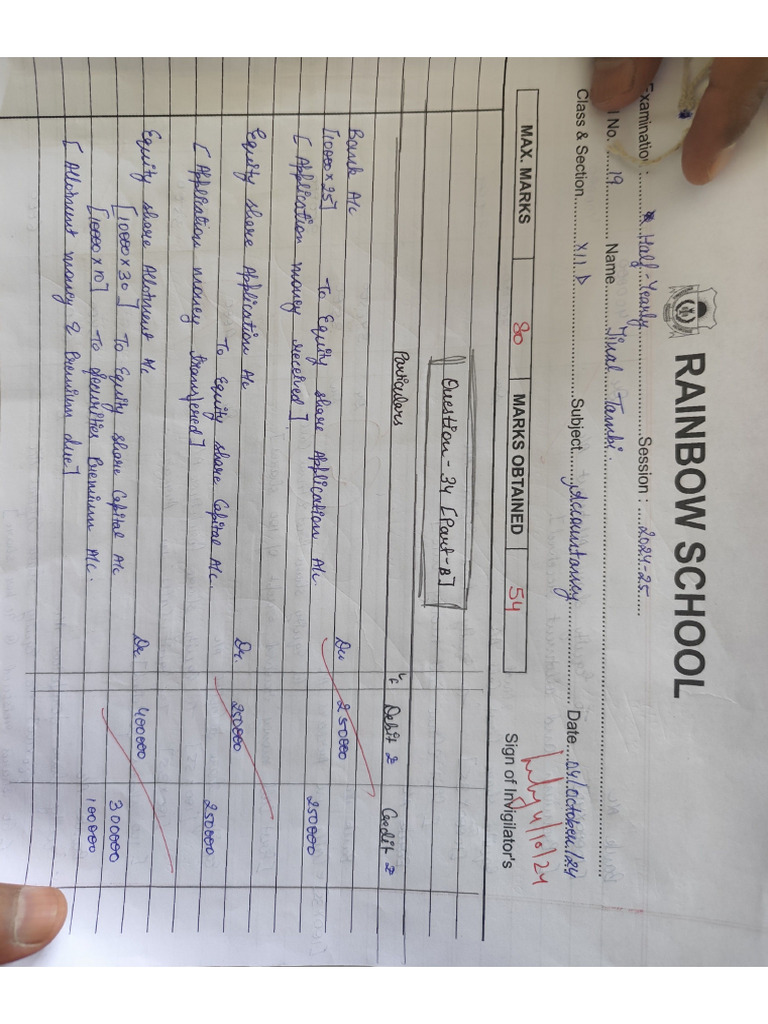 RAINBOW SCHOOL
Examination : Half-Yearly Session : 2024-25
l No. 19 Name Jinal Tambi.
Class & Section XII D Subject Accountancy Date 04/October/24
MAX. MARKS 80 MARKS OBTAINED 54 Sign of Invigilator's
4/10/24
Question - 34 [Part-B]
Particulars L/f Debit ₹ Credit ₹
Bank A/c Dr. 250000
[10000 x 25] To Equity share Application A/c. 250000
[Application money received]
Equity share Application A/c Dr. 250000
To Equity share Capital A/c. 250000
[Application money transfered]
Equity share Allotment A/c Dr. 400000
[10000 x 30] To Equity share Capital A/c 300000
[10000 x 10] To securities Premium A/c. 100000
[Allotment money & Premium due]